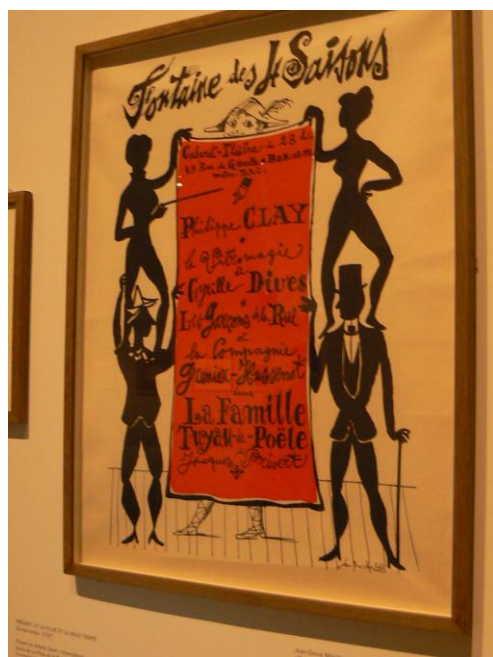 Fontaine des 4 Saisons
Cabaret-Théâtre à 23
Rue de Grenelle
Philippe CLAY
la Vitromagie
à
Cyrille Dives
Les Garçons de la Rue
et
la Compagnie
Grenier-Hussenot
dans
La Famille
Tuyau-de-Poêle
de
Jacques Prévert